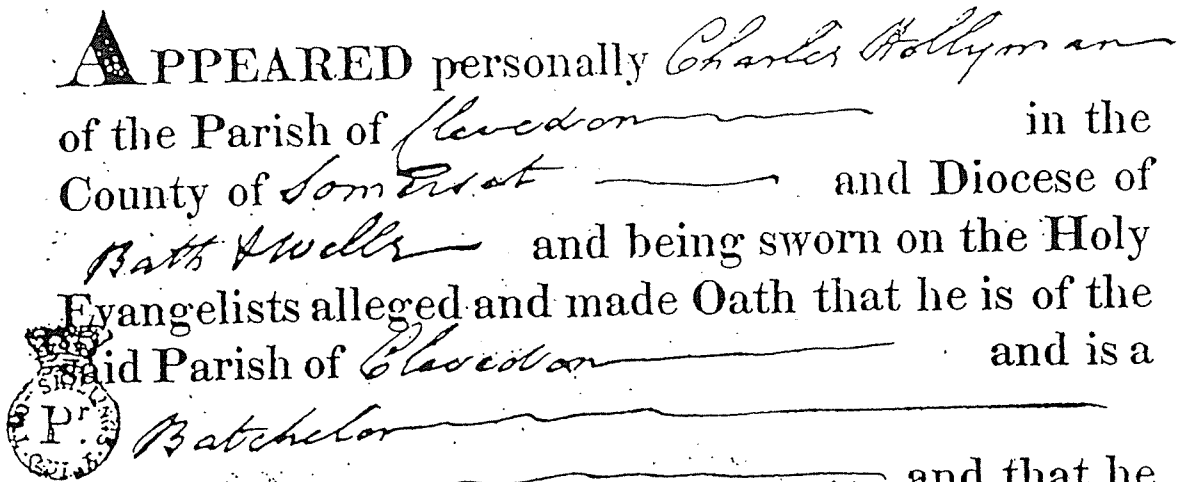 APPEARED personally Charles Hollyman
of the Parish of Clevedon in the
County of Somerset and Diocese of
Bath & Wells and being sworn on the Holy
Evangelists alleged and made Oath that he is of the
said Parish of Clevedon and is a
Batchelor
and that he
Pr.